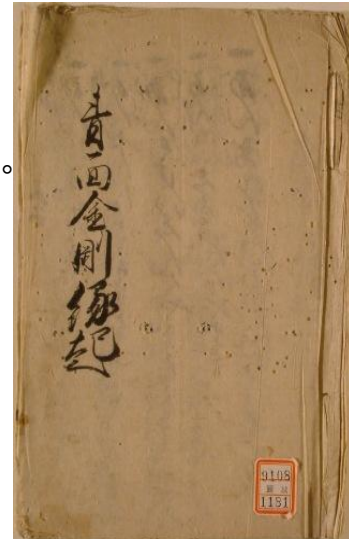 青面金剛縁起
0108
1181